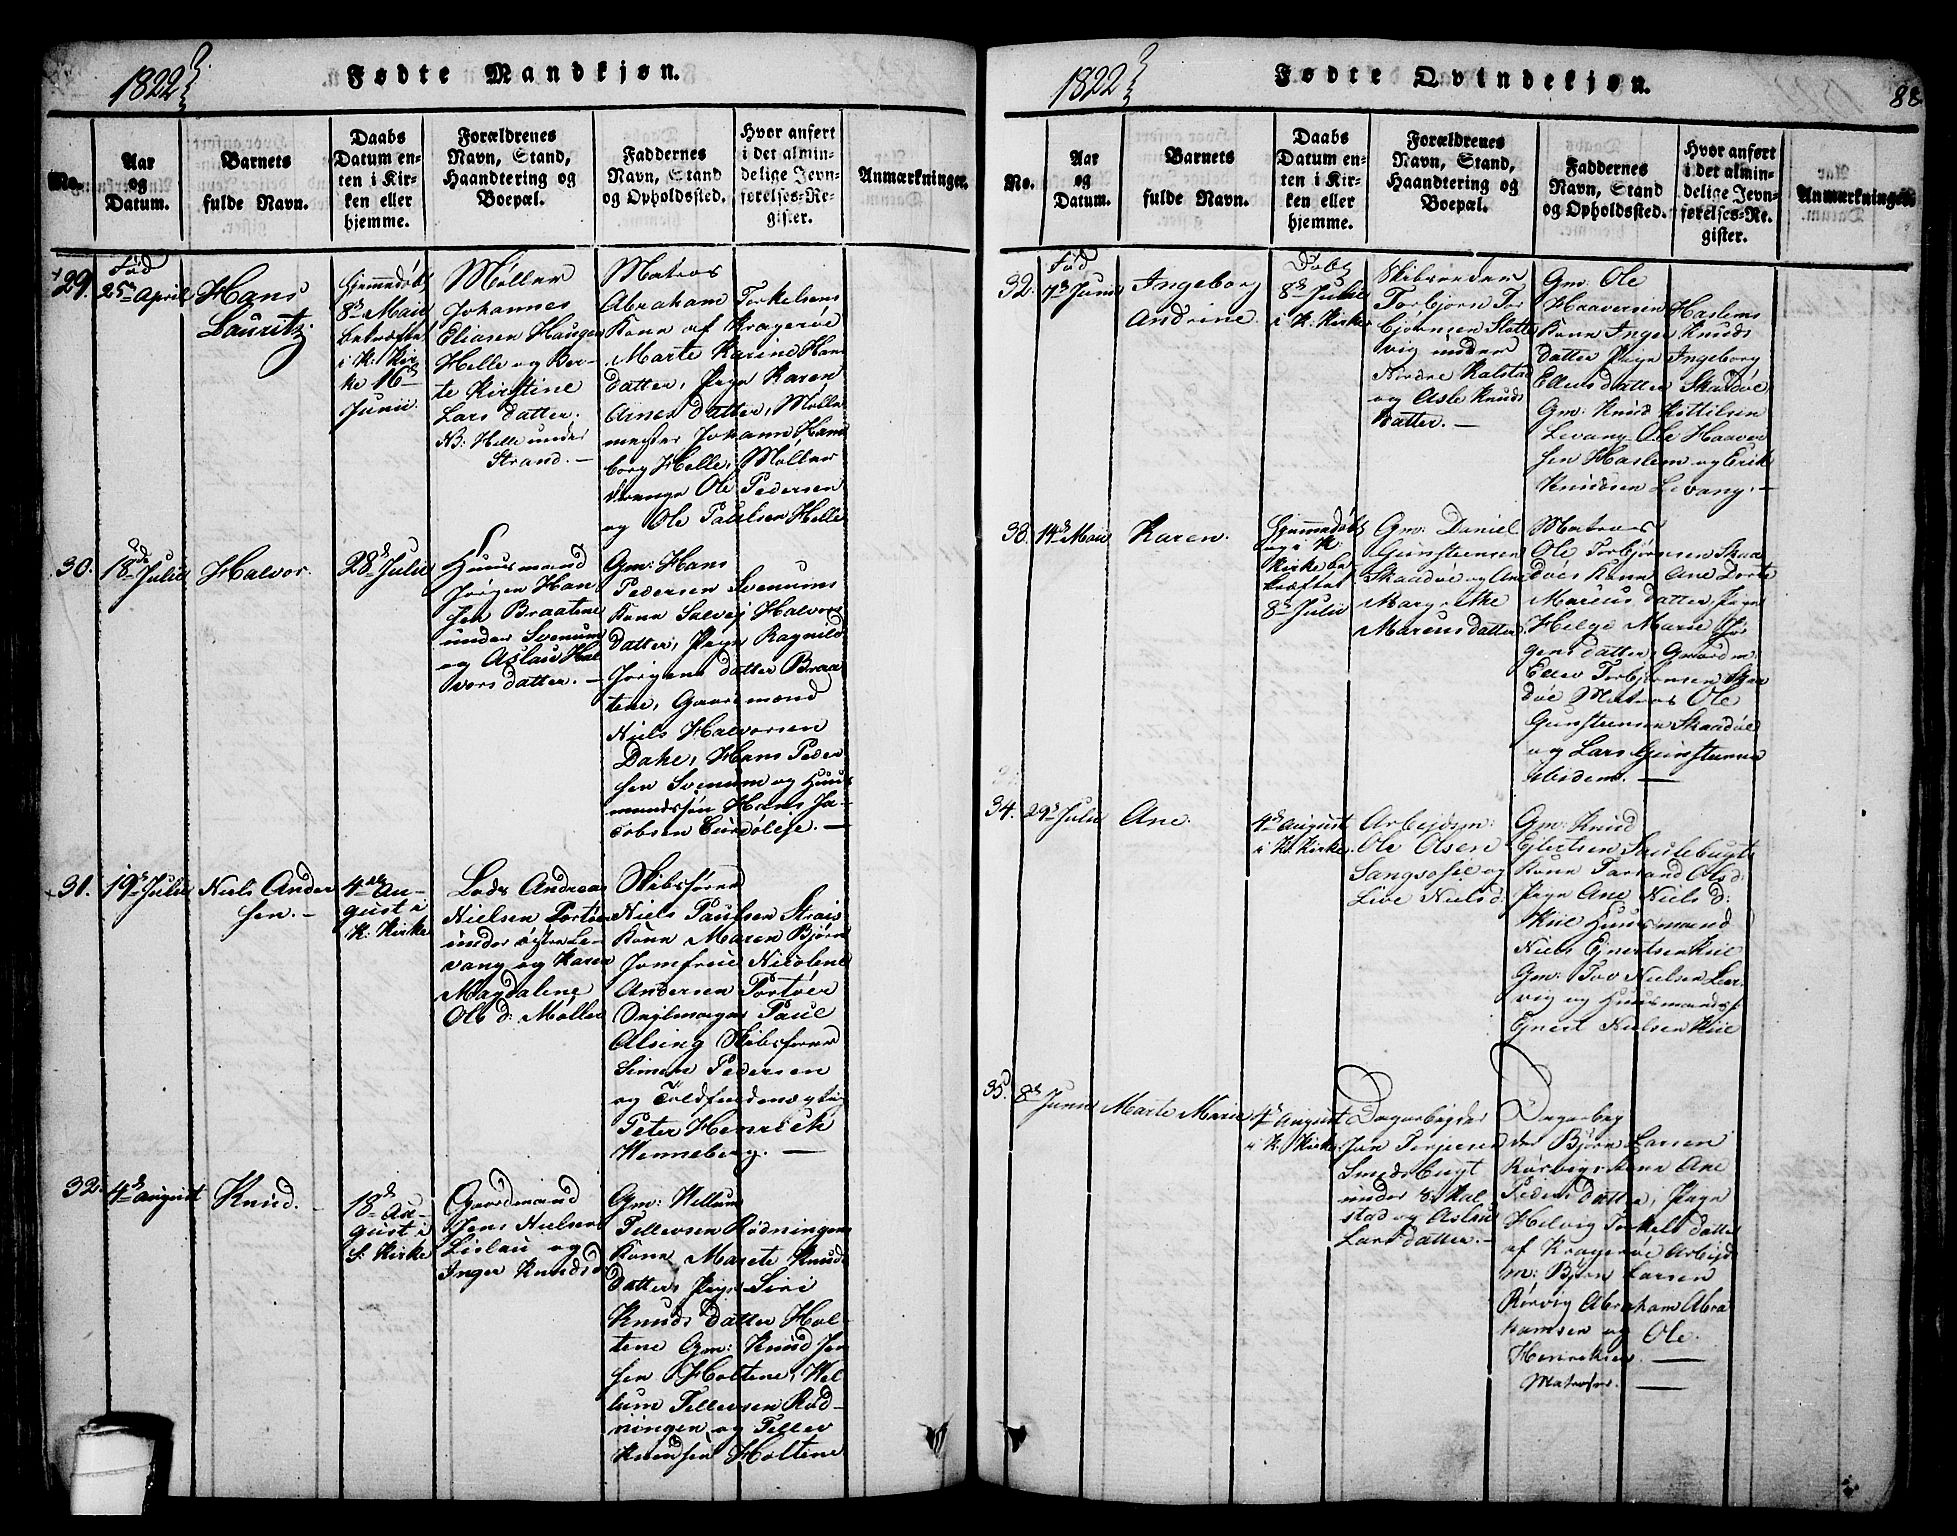 1822
Fødte Mandkjøn.
No.
Aar
og
Datum.
Barnets
fulde Navn.
Daabs
Datum en-
ten i Kir-
ken eller
hjemme.
Forældrenes
Navn, Stand,
Haandtering og
Boepæl.
Faddernes
Navn, Stand
og Opholdssted.
Hvor anført
i det almin-
delige Jevn-
førelses-Re-
gister.
Anmærkninger.
29.
Fød
25de April
Hans
Lauritz.
Hjemmedøbt
8de Maii
bekræftet
i K: Kir-
ke 16de
Junii.
Møller
Johannes
Eliasen Haugen
Helle og Ber-
te Kirstine
Lars datter.
NB: Helle under
Strand. —
Matros
Abraham Torkelsens
Kone af Kragerøe
Marte Karine Hans
datter, Pign Karen
Arnes datter, Møller
mester Johann Ham
borg Helle, Møller
drenge Ole Pedersen
og Ole Paulsen Helle
30.
18de Julii
Halvor.
28de Julii
Huusmand
Jørgen Han
sen Braatene
under Svenum
og Aslau Hal
vors datter. —
Gm: Hans
Pedersen Svenums
Kone Salvej Halvors
datter, Pign Ragnild
Jørgens datter Braa
tene, Gaardmænd
Niels Halvorsen
Dahe, Hans Peder
sen Svenum og Huus
mandssøn Hans Ja-
cobsen Eurdølese. —
31.
19de Julii
Niels Ander
sen. —
4de Au-
gust i
K: Kirke
Lods Andreas
Nielsen Portøer
under østre Le-
vang og Karen
Magdalene
Ols d: Møller
Skibsfører
Niels Paulsen Strais
Kone Maren Bjørn
Jomfrue Nicoline
Andersen Portøer
Paul
Alsing Skibsfører
Simon Pedersen
og
Peter Henrick
Henneberg. —
32.
4de August
Knud. —
18de Au-
gust i
S: Kirke
Gaardmand
Jens Nielsen
Lislau og
Inger Knudsd
Gm: Vellum
Tellevsen Rødningens
Kone Marete Knuds
datter, Pign Siri
Knuds datter Hol-
tene Gm: Knud Jen
sen Holtene, Vel
lum Tellevsen Rød-
ningen og Tellev
Knudsen Holtene
1822
Fødte Qvindekjøn.
88
No.
Aar
og
Datum.
Barnets
fulde Navn.
Daabs
Datum en-
ten i Kir-
ken eller
hjemme.
Forældrenes
Navn, Stand,
Haandtering og
Boepæl.
Faddernes
Navn, Stand
og Opholdssted.
Hvor anført
i det almin-
delige Jevn-
førelses-Re-
gister.
Anmærkninger.
32.
Fød
7de Junii
Ingeborg
Andrine.
Døbt
8de Julii
i K: Kirke
Skibsreder
Torbjørn Tor
bjørnsen Slotte
vig under
Nordre Kalstad
og Asle Knuds
datter. —
Gm: Ole
Haaversen Haslems
Kone Inger Knuds
datter Pign Ingeborg
Ellens datter Skaadøe
Gm: Knud Kittilsen
Levang Ole Haaver
sen Haslem og Erik
Knudsen Levang. —
33.
14de Maii
Karen.
Hjemmedøbt
og i K:
Kirke be
kræftet
8de Julii
Gm: Daniel
Gunstensen
Skaadøe og Ane
Margrethe
Marcus datter
Matros
Ole Torbjørnsen Skaa
døes Kone Ane Dorte
Marcus datter Pign
Helge Marie Jør
gens datter, Gaardm
Ellev Torbjørnsen Skaa
døe Matros Ole
Gunstensen Skaadøe
og Lars Gunstensen
ibidem. —
34.
29de Julii
Ane.
4de August
i K: Kirke.
Arbejdsm:
Ole Olsen
Sangsofie og
Live Nielsd
Gm: Knud
Saltebugts
Kone Torand Olsd:
Pign Ane Niels d:
Kiil Huusmand
Niels Ejvertsen Kiil
Gm: Tov Nielsen Leer
vig og Huusmands s
Ejvert Nielsen Kiil
35.
8de Junii
Marte Marie
4de August
i K: Kirke.
Dagarbejder
Jon Terjesen
Smedsbugt
under S: Kal
stad og Aslau
Lars datter. —
Dagarbej
der Bjørn Larsen
Rørvigs Kone Ane
Peders datter, Pign
Helvig Torkels datter
af Kragerøe Arbejds
m: Bjørn Larsen
Rørvig Abraham Abra
hamsen og Ole
Henricksen. —
Matroser. —